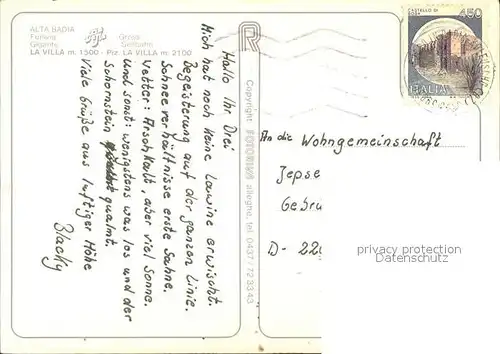 ALTA BADIA
Funivia
Gigante
LA VILLA m. 1500 - Piz. LA VILLA m. 2100
Hallo Ihr Drei
Mich hat noch keine Lawine erwischt.
Begeisterung auf der ganzen Linie.
Schneeverhältnisse erste Sahne.
Vetter: Arschkalt, aber viel Sonne.
Und sonst: wenigstens was los und der
Schornstein qualmt.
Viele Grüße aus luftiger Höhe
Blacky
R
Copyright FOTORIVA alleghe, tel. 0437/72 33 43
CASTELLO DI
450
ITALIA
An die Wohngemeinschaft
Jepse
Gebru
D-
privacy protection
Datenschutz